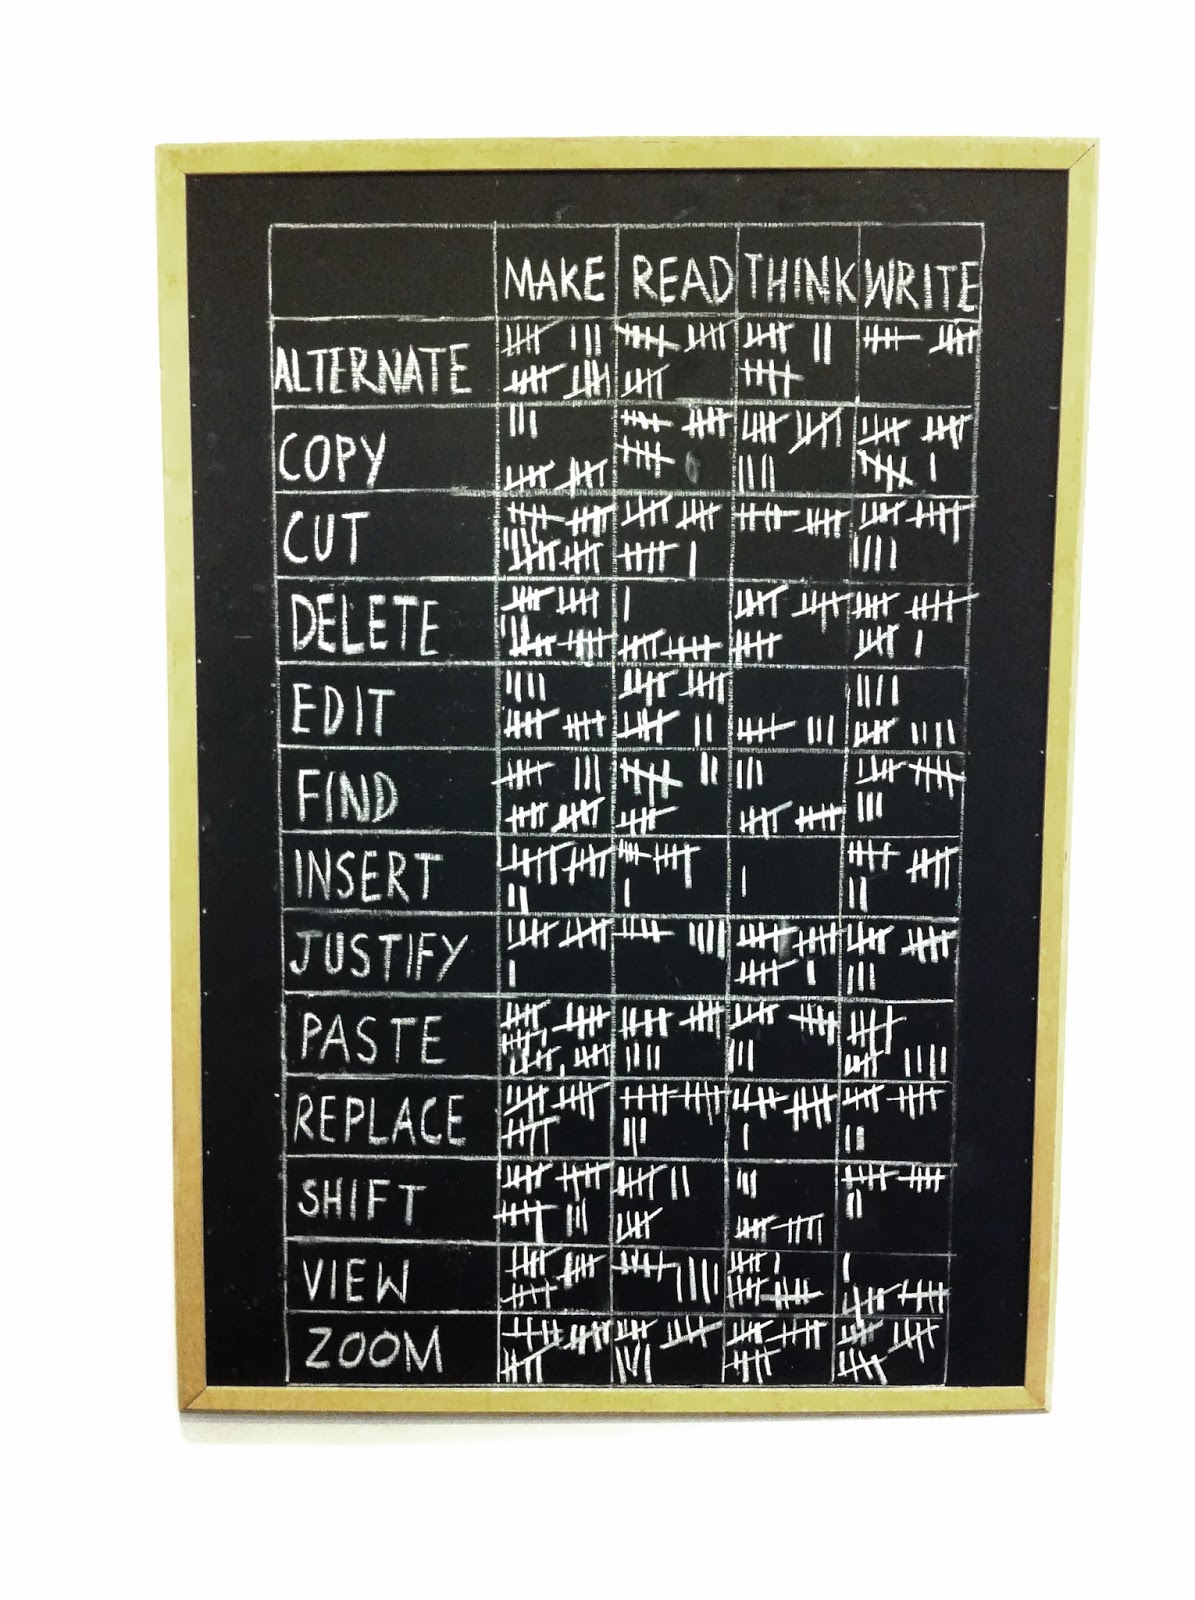 MAKE READ THINK WRITE
ALTERNATE
COPY
CUT
DELETE
EDIT
FIND
INSERT
JUSTIFY
PASTE
REPLACE
SHIFT
VIEW
ZOOM